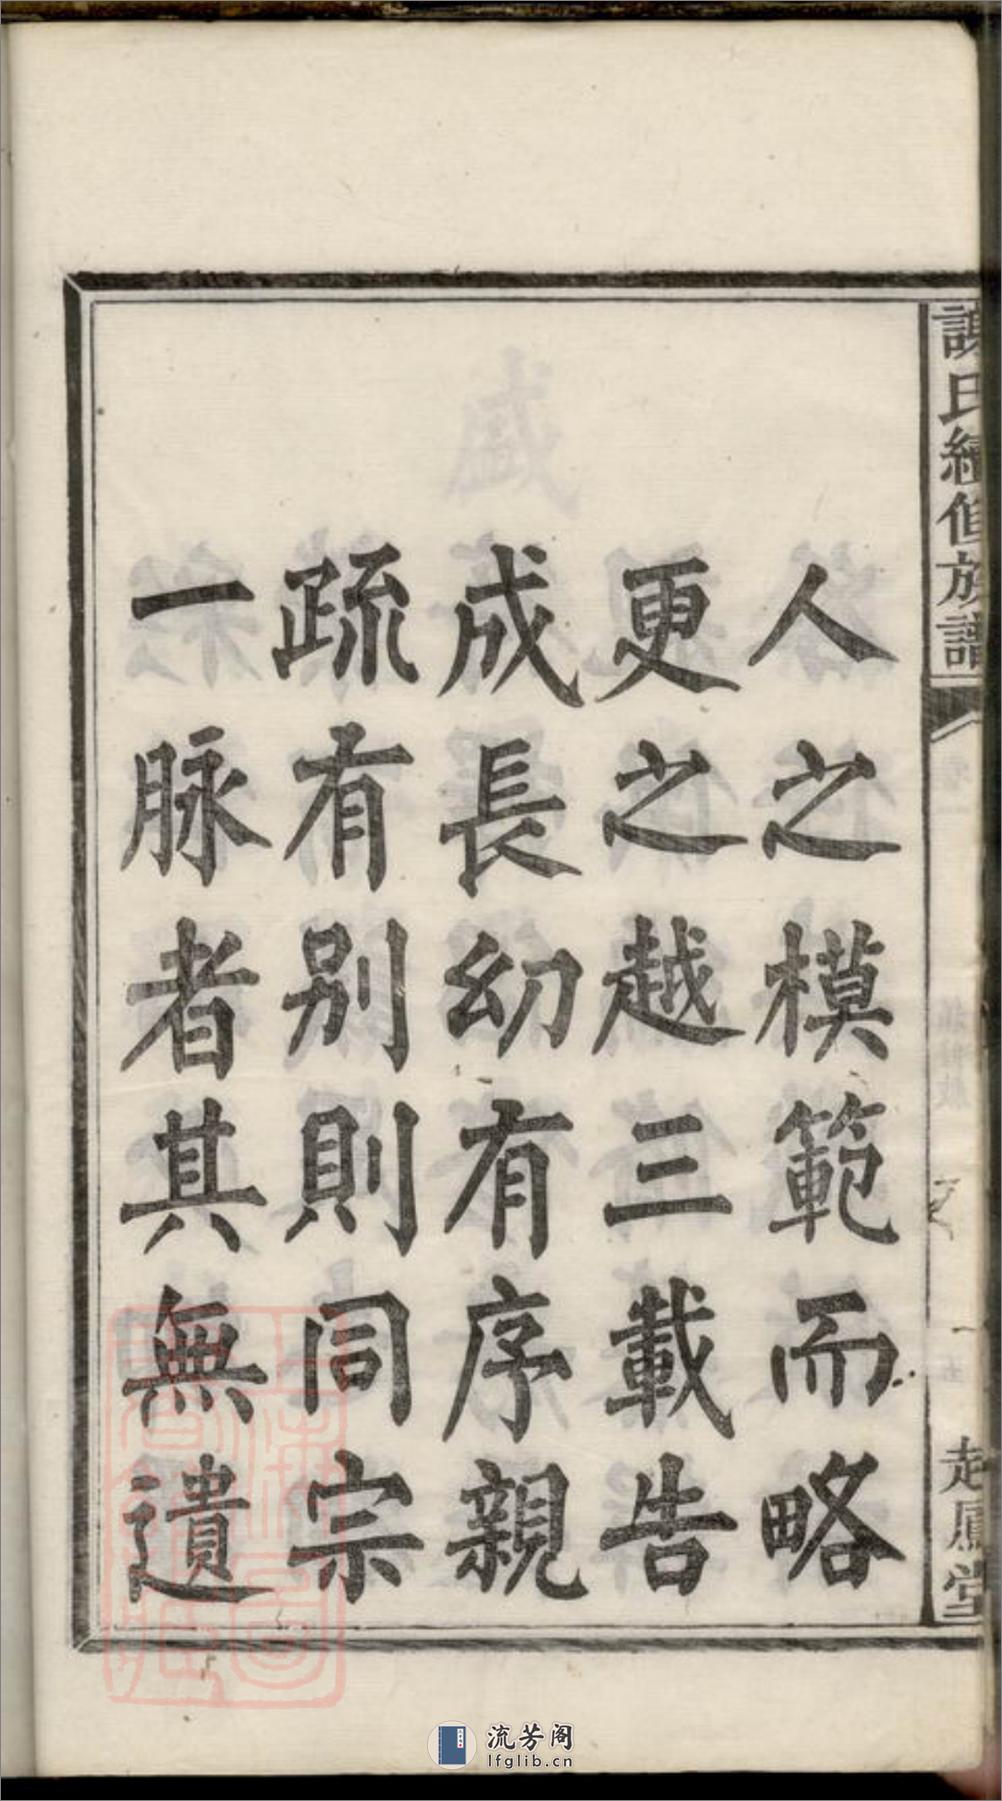 人之模範而略
更之越三載告
成長幼有序親
疏有别則同宗
一脉者其無遺
氏續修族譜
一
起鳳堂
流芳阁
lfglib.cn